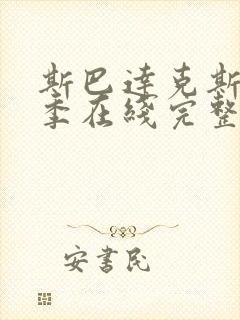 斯巴达克斯
季在线完整
安书民